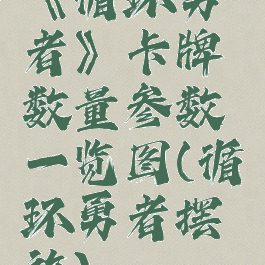 《循环勇
者》卡牌
数量参数
一览图(循
环勇者摆